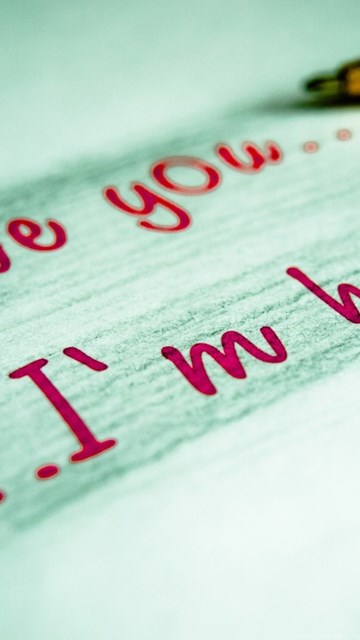 ve you..
..I'm h